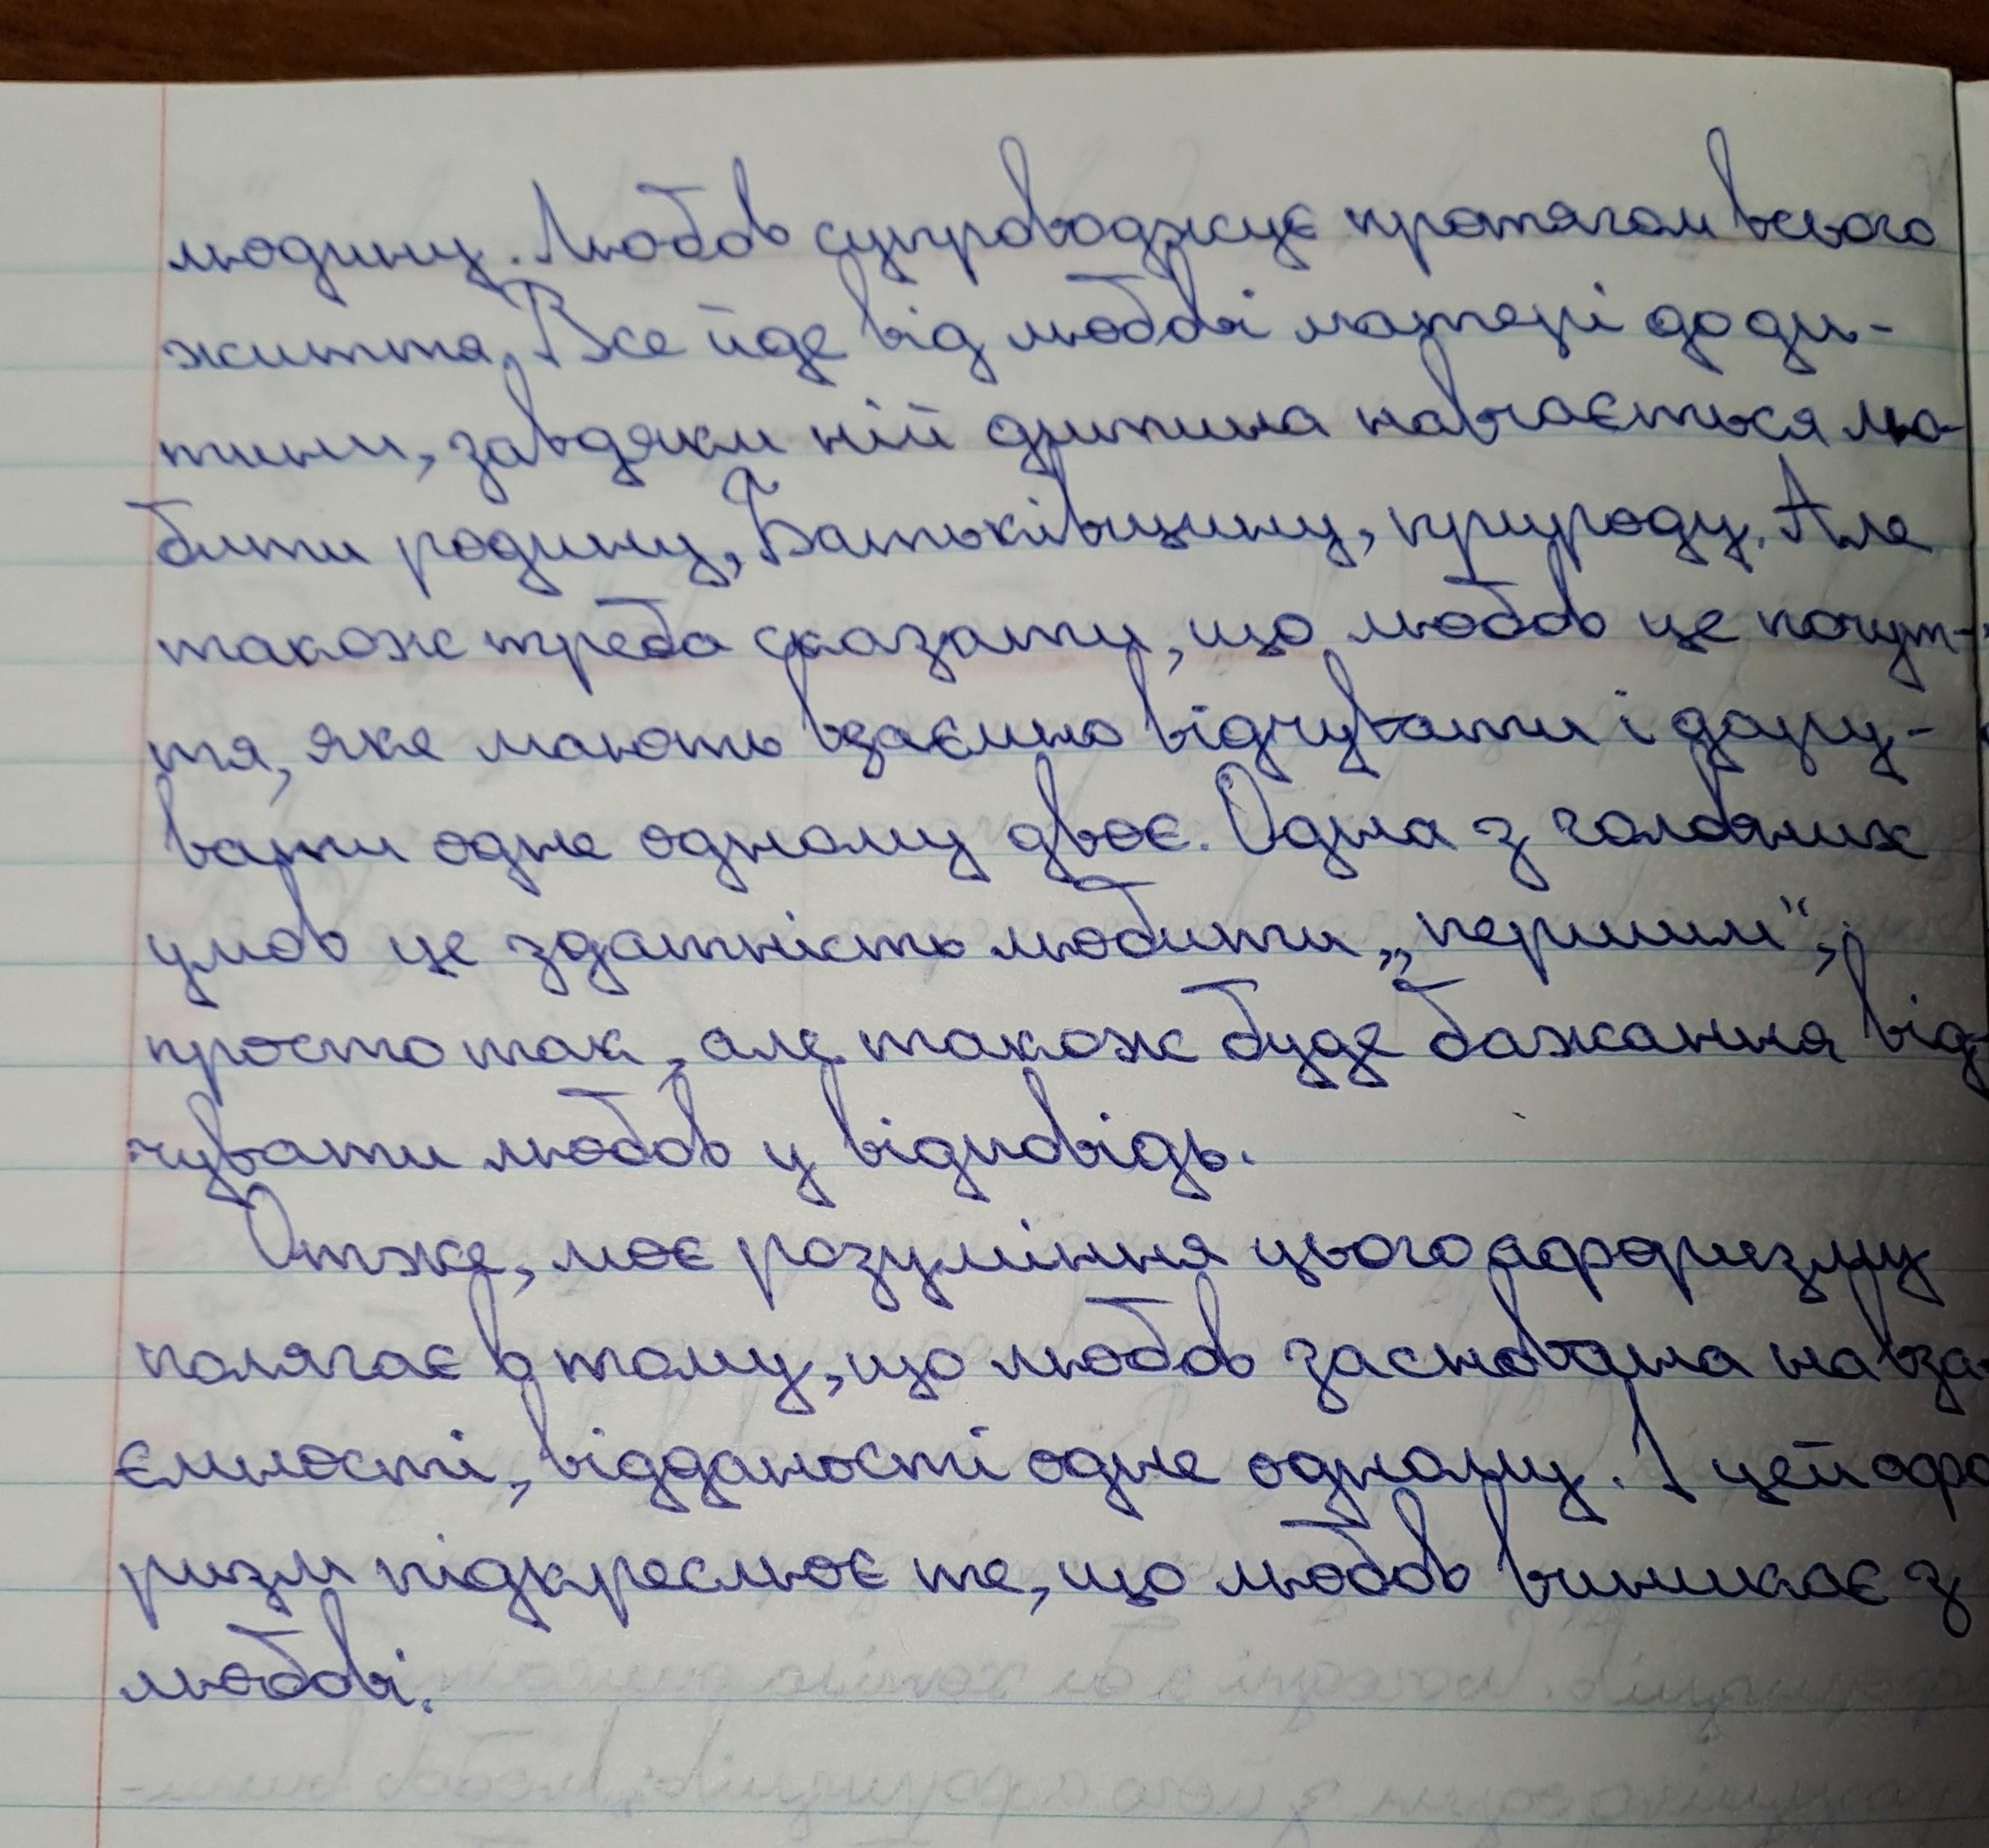 людину. Любов супроводжує протягом всього
життя. Все йде від любові матері до ди-
тини, завдяки ній дитина навчається лю-
бити родину, Батьківщину, природу. Але
також треба сказати, що любов це почут-
тя, яке мають взаємно відчувати і дару-
вати одне одному двоє. Одна з головних
умов це здатність любити „першим",
просто так, але також буде бажання від-
чувати любов у відповідь.
Отже, моє розуміння цього афоризму
полягає в тому, що любов заснована на вза-
ємності, відданості одне одному. І цей афо
ризм підкреслює те, що любов виникає з
любові.